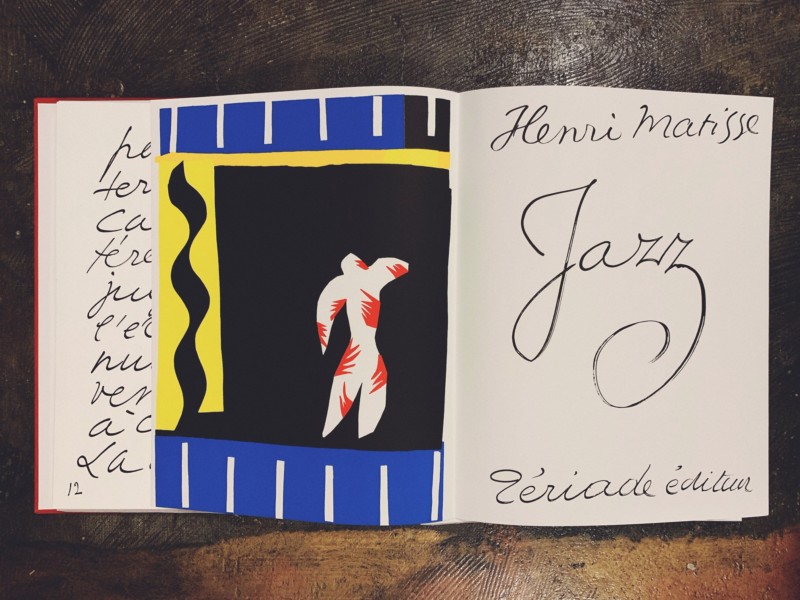 pe
ter
ca
tére
ju
l'e
nu
ven
à c
La
12
Henri Matisse
Jazz
Tériade éditeur